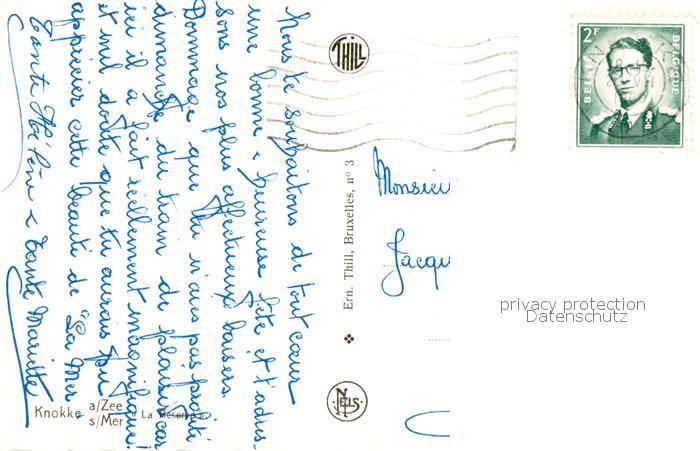 Nous te souhaitons de tout cœur
une bonne & heureuse fête et t'adres-
sons nos plus affectueux baisers.
Dommage que tu n'aies pas profité
dimanche du train de plaisir car
ici il a fait réellement magnifique!
et nul doute que tu aurais pu
apprécier cette beauté de "La Mer"
Tante Hélène & Tante Mariette
THILL
Ern. Thill, Bruxelles, nº 3
NELS
Knokke a/Zee
s/Mer
« La Réserve »
2F
BELGIE BELGIQUE
Monsieu
Jacqu
privacy protection
Datenschutz